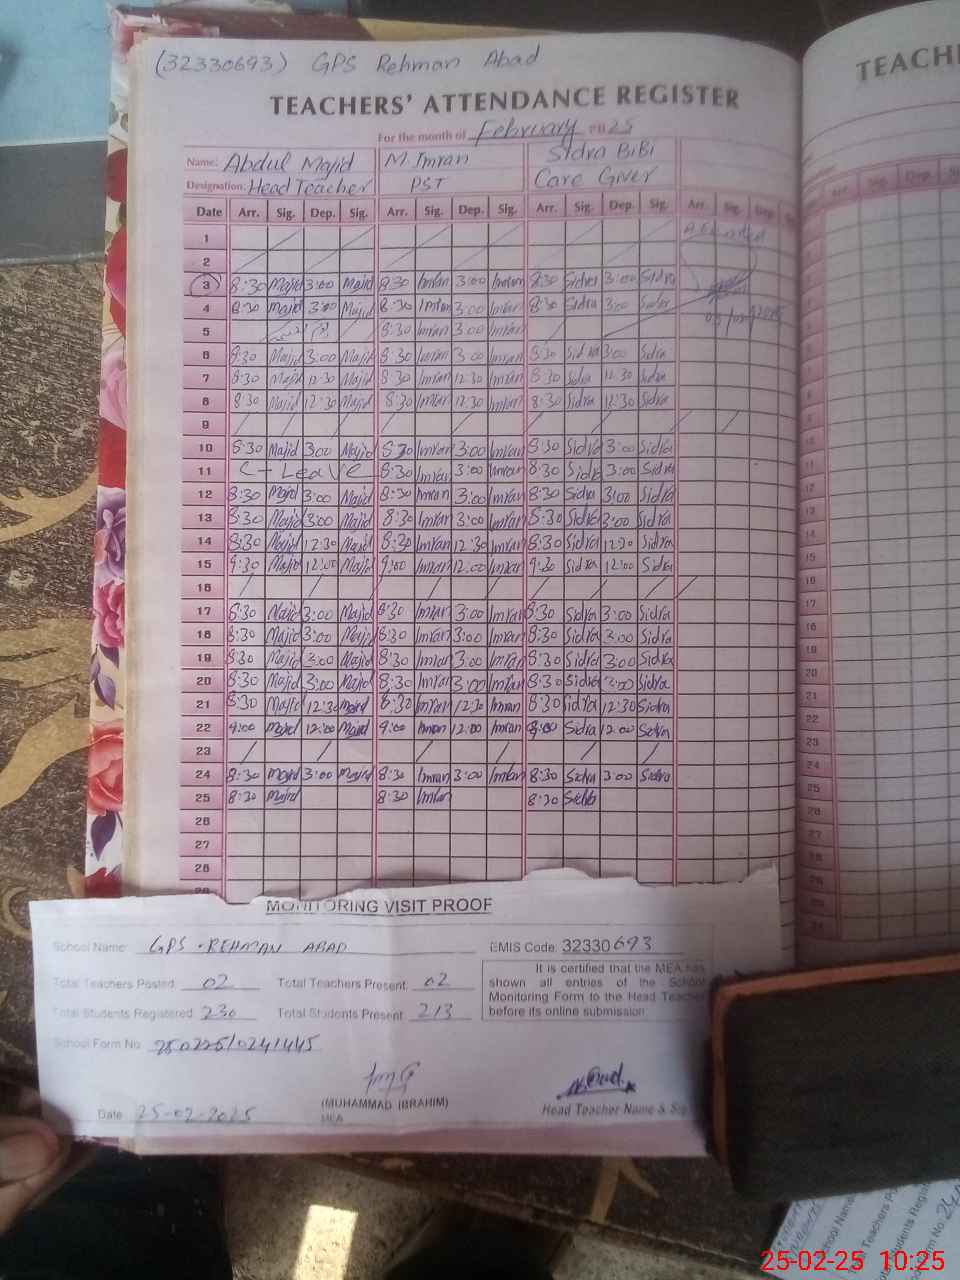 (32330693) GPS Rehman Abad
TEACHERS' ATTENDANCE REGISTER
For the month of February 2025
Name: Abdul Majid M. Imran Sidra BiBi
Designation: Head Teacher PST Care Giver
Date Arr. Sig. Dep. Sig. Arr. Sig. Dep. Sig. Arr. Sig. Dep. Sig. Arr. Sig. Dep.
1
2
3 8:30 Majid 3:00 Majid 8:30 Imran 3:00 Imran 8:30 Sidra 3:00 Sidra
4 8:30 Majid 3:00 Majid 8:30 Imran 3:00 Imran 8:30 Sidra 3:00 Sidra
5 8:30 Imran 3:00 Imran
6 8:30 Majid 3:00 Majid 8:30 Imran 3:00 Imran 8:30 Sidra 3:00 Sidra
7 8:30 Majid 12:30 Majid 8:30 Imran 12:30 Imran 8:30 Sidra 12:30 Sidra
8 8:30 Majid 12:30 Majid 8:30 Imran 12:30 Imran 8:30 Sidra 12:30 Sidra
9
10 8:30 Majid 3:00 Majid 8:30 Imran 3:00 Imran 8:30 Sidra 3:00 Sidra
11 C-Leave 8:30 Imran 3:00 Imran 8:30 Sidra 3:00 Sidra
12 8:30 Majid 3:00 Majid 8:30 Imran 3:00 Imran 8:30 Sidra 3:00 Sidra
13 8:30 Majid 3:00 Majid 8:30 Imran 3:00 Imran 8:30 Sidra 3:00 Sidra
14 8:30 Majid 12:30 Majid 8:30 Imran 12:30 Imran 8:30 Sidra 12:30 Sidra
15 9:30 Majid 12:00 Majid 9:00 Imran 12:00 Imran 9:30 Sidra 12:00 Sidra
16
17 8:30 Majid 3:00 Majid 8:30 Imran 3:00 Imran 8:30 Sidra 3:00 Sidra
18 8:30 Majid 3:00 Majid 8:30 Imran 3:00 Imran 8:30 Sidra 3:00 Sidra
19 8:30 Majid 3:00 Majid 8:30 Imran 3:00 Imran 8:30 Sidra 3:00 Sidra
20 8:30 Majid 3:00 Majid 8:30 Imran 3:00 Imran 8:30 Sidra 3:00 Sidra
21 8:30 Majid 12:30 Majid 8:30 Imran 12:30 Imran 8:30 Sidra 12:30 Sidra
22 9:00 Majid 12:00 Majid 9:00 Imran 12:00 Imran 9:00 Sidra 12:00 Sidra
23
24 8:30 Majid 3:00 Majid 8:30 Imran 3:00 Imran 8:30 Sidra 3:00 Sidra
25 8:30 Majid 8:30 Imran 8:30 Sidra
26
27
28
MONITORING VISIT PROOF
School Name: GPS REHMAN ABAD EMIS Code: 32330693
Total Teachers Posted 02 Total Teachers Present: 02
Total Students Registered 230 Total Students Present 213
It is certified that the MEA has
shown all entries of the School
Monitoring Form to the Head Teacher
before its online submission
School Form No.
(MUHAMMAD IBRAHIM)
MEA
Head Teacher Name & Sig
Date 25-02-2025
25-02-25 10:25